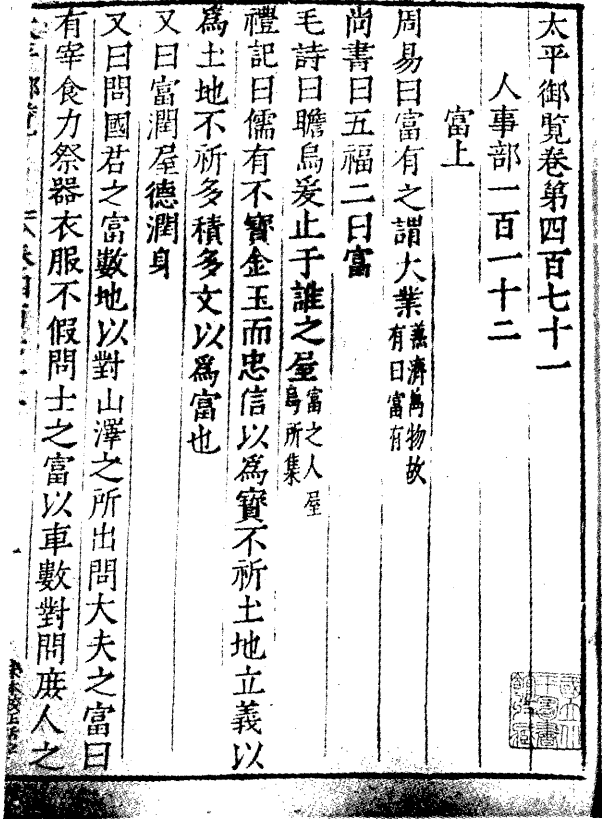 太平御覧卷第四百七十一
人事部一百一十二
富上
周易曰富有之謂大業兼濟萬物故有曰富有
尚書曰五福二曰富
毛詩曰瞻烏爰止于誰之屋富之人屋烏所集
禮記曰儒有不寳金玉而忠信以爲寳不祈土地立義以
爲土地不祈多積多文以爲富也
又曰富潤屋德潤身
又曰問國君之富數地以對山澤之所出問大夫之富曰
有宰食力祭器衣服不假問士之富以車數對問庻人之